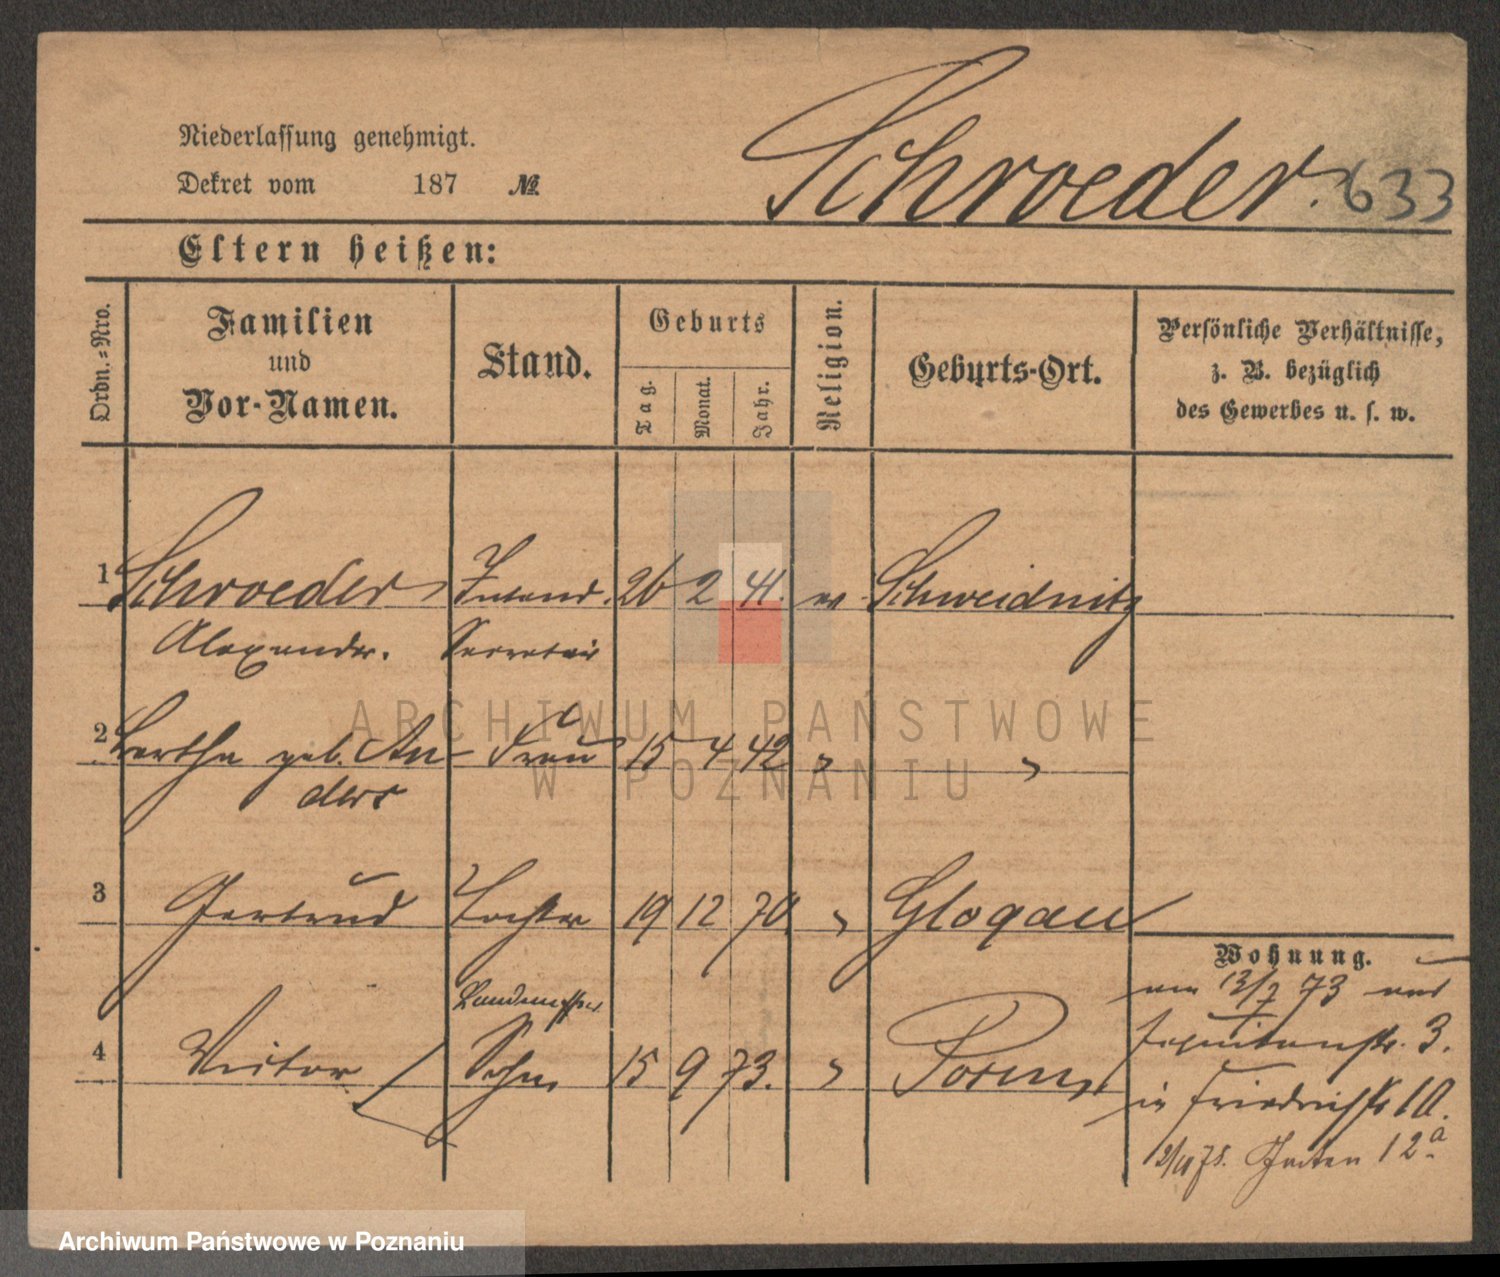 Niederlassung genehmigt.
Dekret vom 187 №
Schroeder. 633
Eltern heißen:
Ordn.-Nro.
Familien
und
Vor-Namen.
Stand.
Geburts
Tag.
Monat.
Jahr.
Religion.
Geburts-Ort.
Persönliche Verhältnisse,
z. B. bezüglich
des Gewerbes u. s. w.
1 Schroeder Intend. 26 2 41. ev Schweidnitz
Alexander. Secretair
2 Bertha geb. An- Frau 15 4 42 " "
ders
3 Gertrud Tochter 19 12 70 " Glogau
4 Victor Sohn 15 9 73. " Posen
Wohnung.
am 13/7 73 aus
Jesuitenstr. 3.
in Friedrichstr 10.
12ª
ARCHIWUM PAŃSTWOWE
W POZNANIU
Archiwum Państwowe w Poznaniu